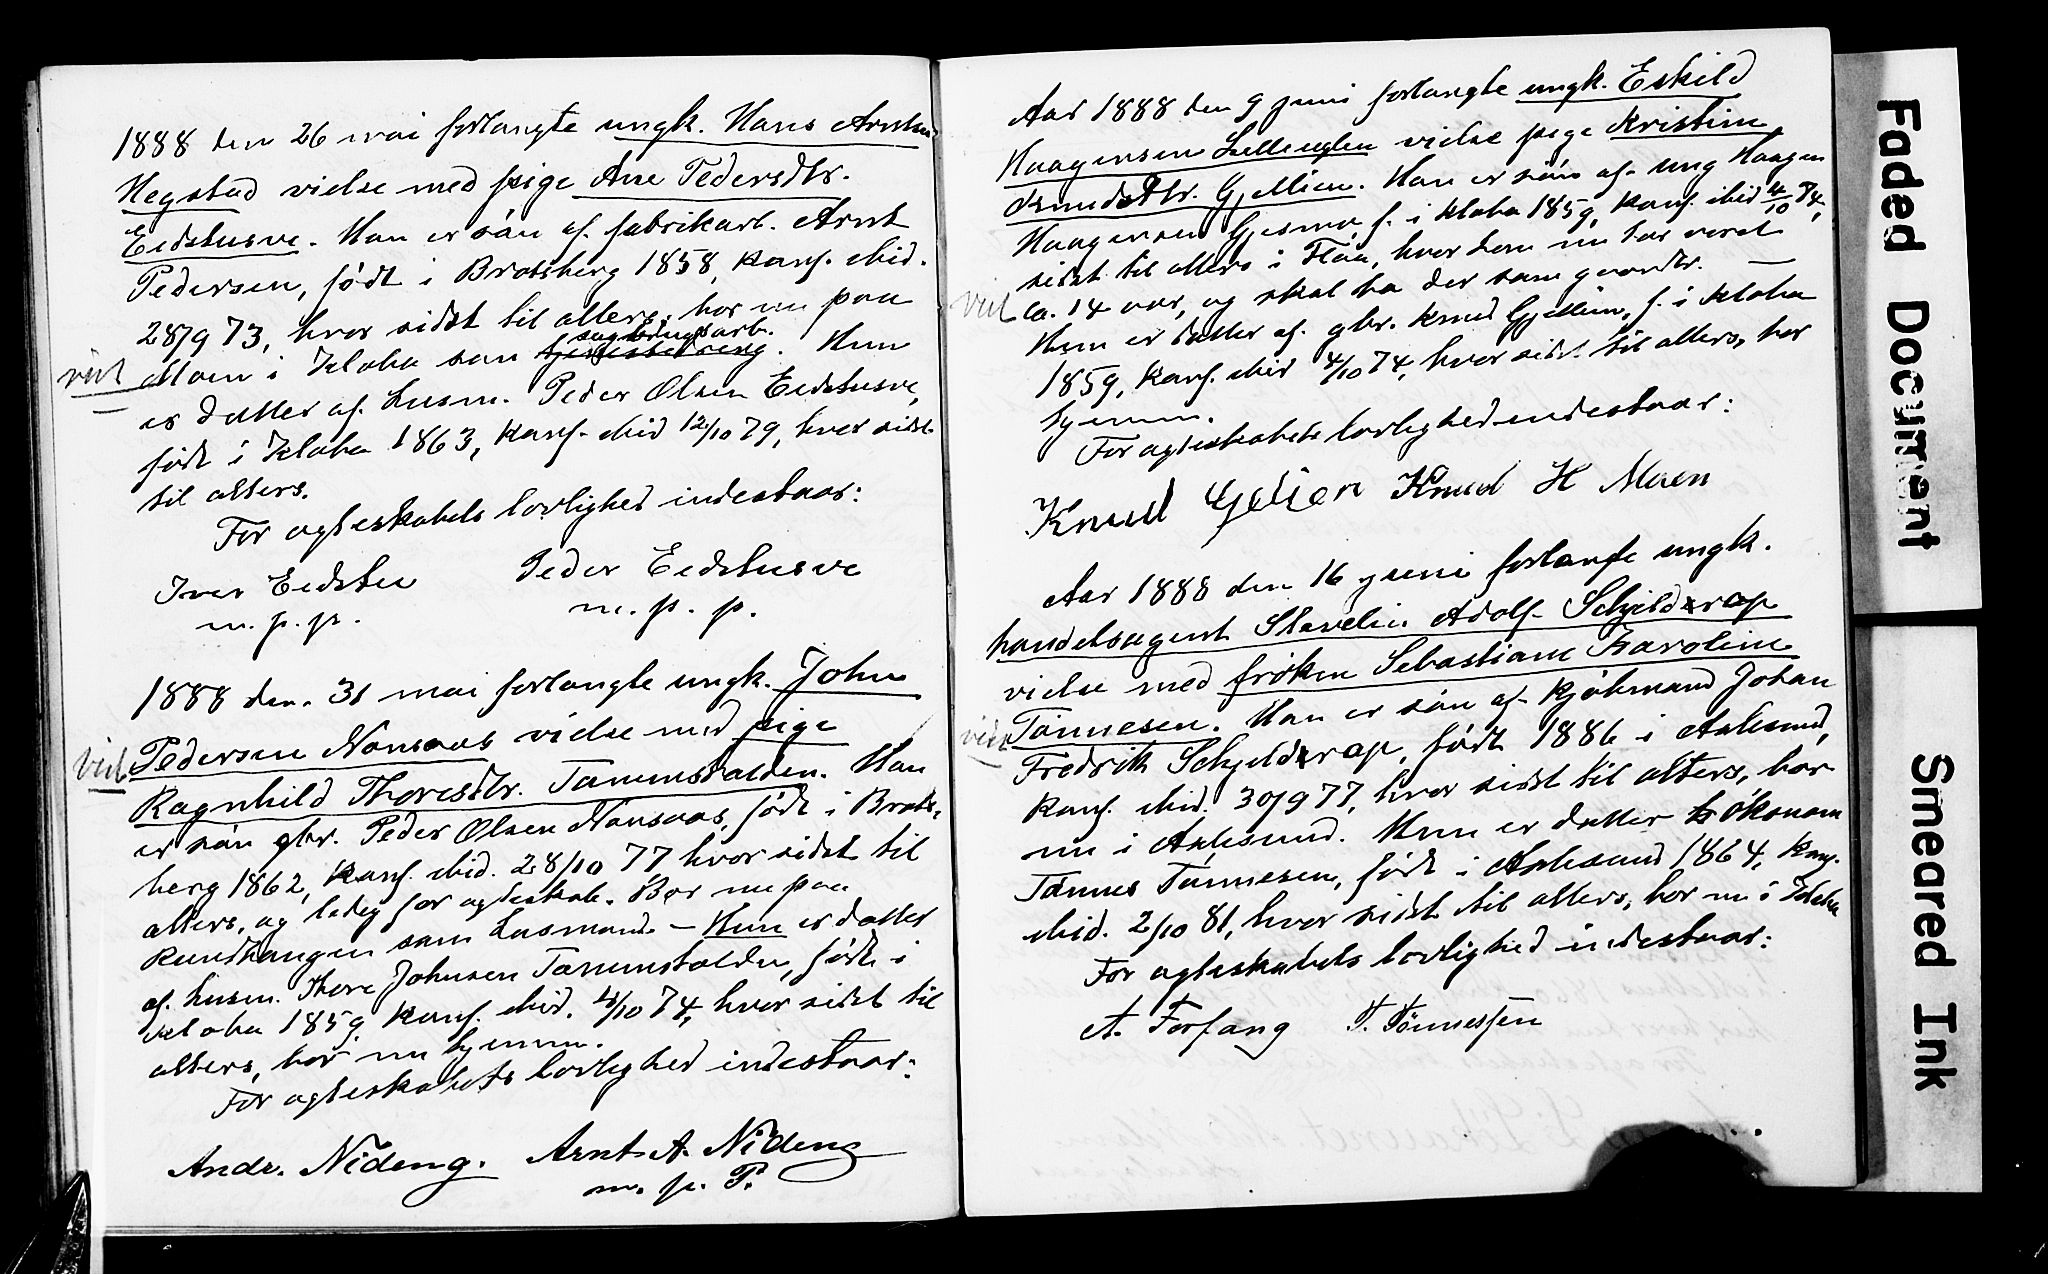 1888 den 26 mai forlangte ungk. Hans Arntsen
Hegstad vielse med pige Ane Pedersdtr.
Eidstusve. Han er sön af. fabrikarb. Arnt
Pedersen, födt i Bratsberg 1858, konf. ibid.
28/9 73, hvor sidst til alters, bor nu paa
sagbrugsarb.
viet
Moen i Klæbu som. Hun
er datter af. husm. Peder Olsen Eidstusve,
födt i Klæbu 1863, konf. ibid 12/10 79, hvor sidst
til alters.
For ægteskabets lovlighed indestaar:
Iver Eidstu Peder Eidstusve
m. p. p. m. p. p.
1888 den. 31 mai forlangte ungk. John
viet Pedersen Nonsaas vielse med pige
Ragnhild Thoresdtr. Tanemsvalden. Han
er sön gbr. Peder Olsen Nonsaas, födt i Brats-
berg 1862, konf. ibid. 28/10 77 hvor sidst til
alters, og ledig for ægteskab. Bor nu paa
som husmand. – Hun er datter
af. husm. Thore Johnsen Tanemsvalden, födt i
Klæbu 1859, konf. ibid. 4/10 74, hvor sidst til
alters, bor nu hjemme.
For ægteskabets lovlighed indestaar:
Andr. Nideng. Arnt A. Nideng
m. p. P.
Aar 1888 den 9 juni forlangte ungk. Eskild
Haagensen Lilleuglen vielse pige Kristine
Knudsdtr. Gjellien. Han er sön af. ung Haagen
Haagensen Gjesmo, f. i Klæbu 1859, konf. ibid 4/10 74,
sidst til alters i Flaa, hvor han nu har været
viet ca. 14 aar, og skal ha der som gaardbr. —
Hun er datter af. gbr. Knud Gjellien, f. i Klæbu
1859, konf. ibid 4/10 74, hvor sidst til alters, bor
hjemm.
For ægteskabets lovlighed indestaar:
Knud Gjelien Knud H Moen
Aar 1888 den 16 juni forlangte ungk.
handelsagent Stavelin Adolf Schjelderup
vielse med fröken Sebastiane Karoline
viet Tönnesen. Han er sön af. kjöbmand Johan
Fredrik Schjelderup, födt 1886 i Aalesund,
konf. ibid. 30/9 77, hvor sidst til alters, bor
nu i Aalesund. Hun er datter ökonom
Tönnes Tönnesen, födt i Aalesund 1864, konf.
ibid. 2/10 81, hvor sidst til alters, bor nu i Klæbu
For ægteskabets lovlighed indestaar:
A. Forfang T. Tönnessen
Faded Document
Smeared Ink